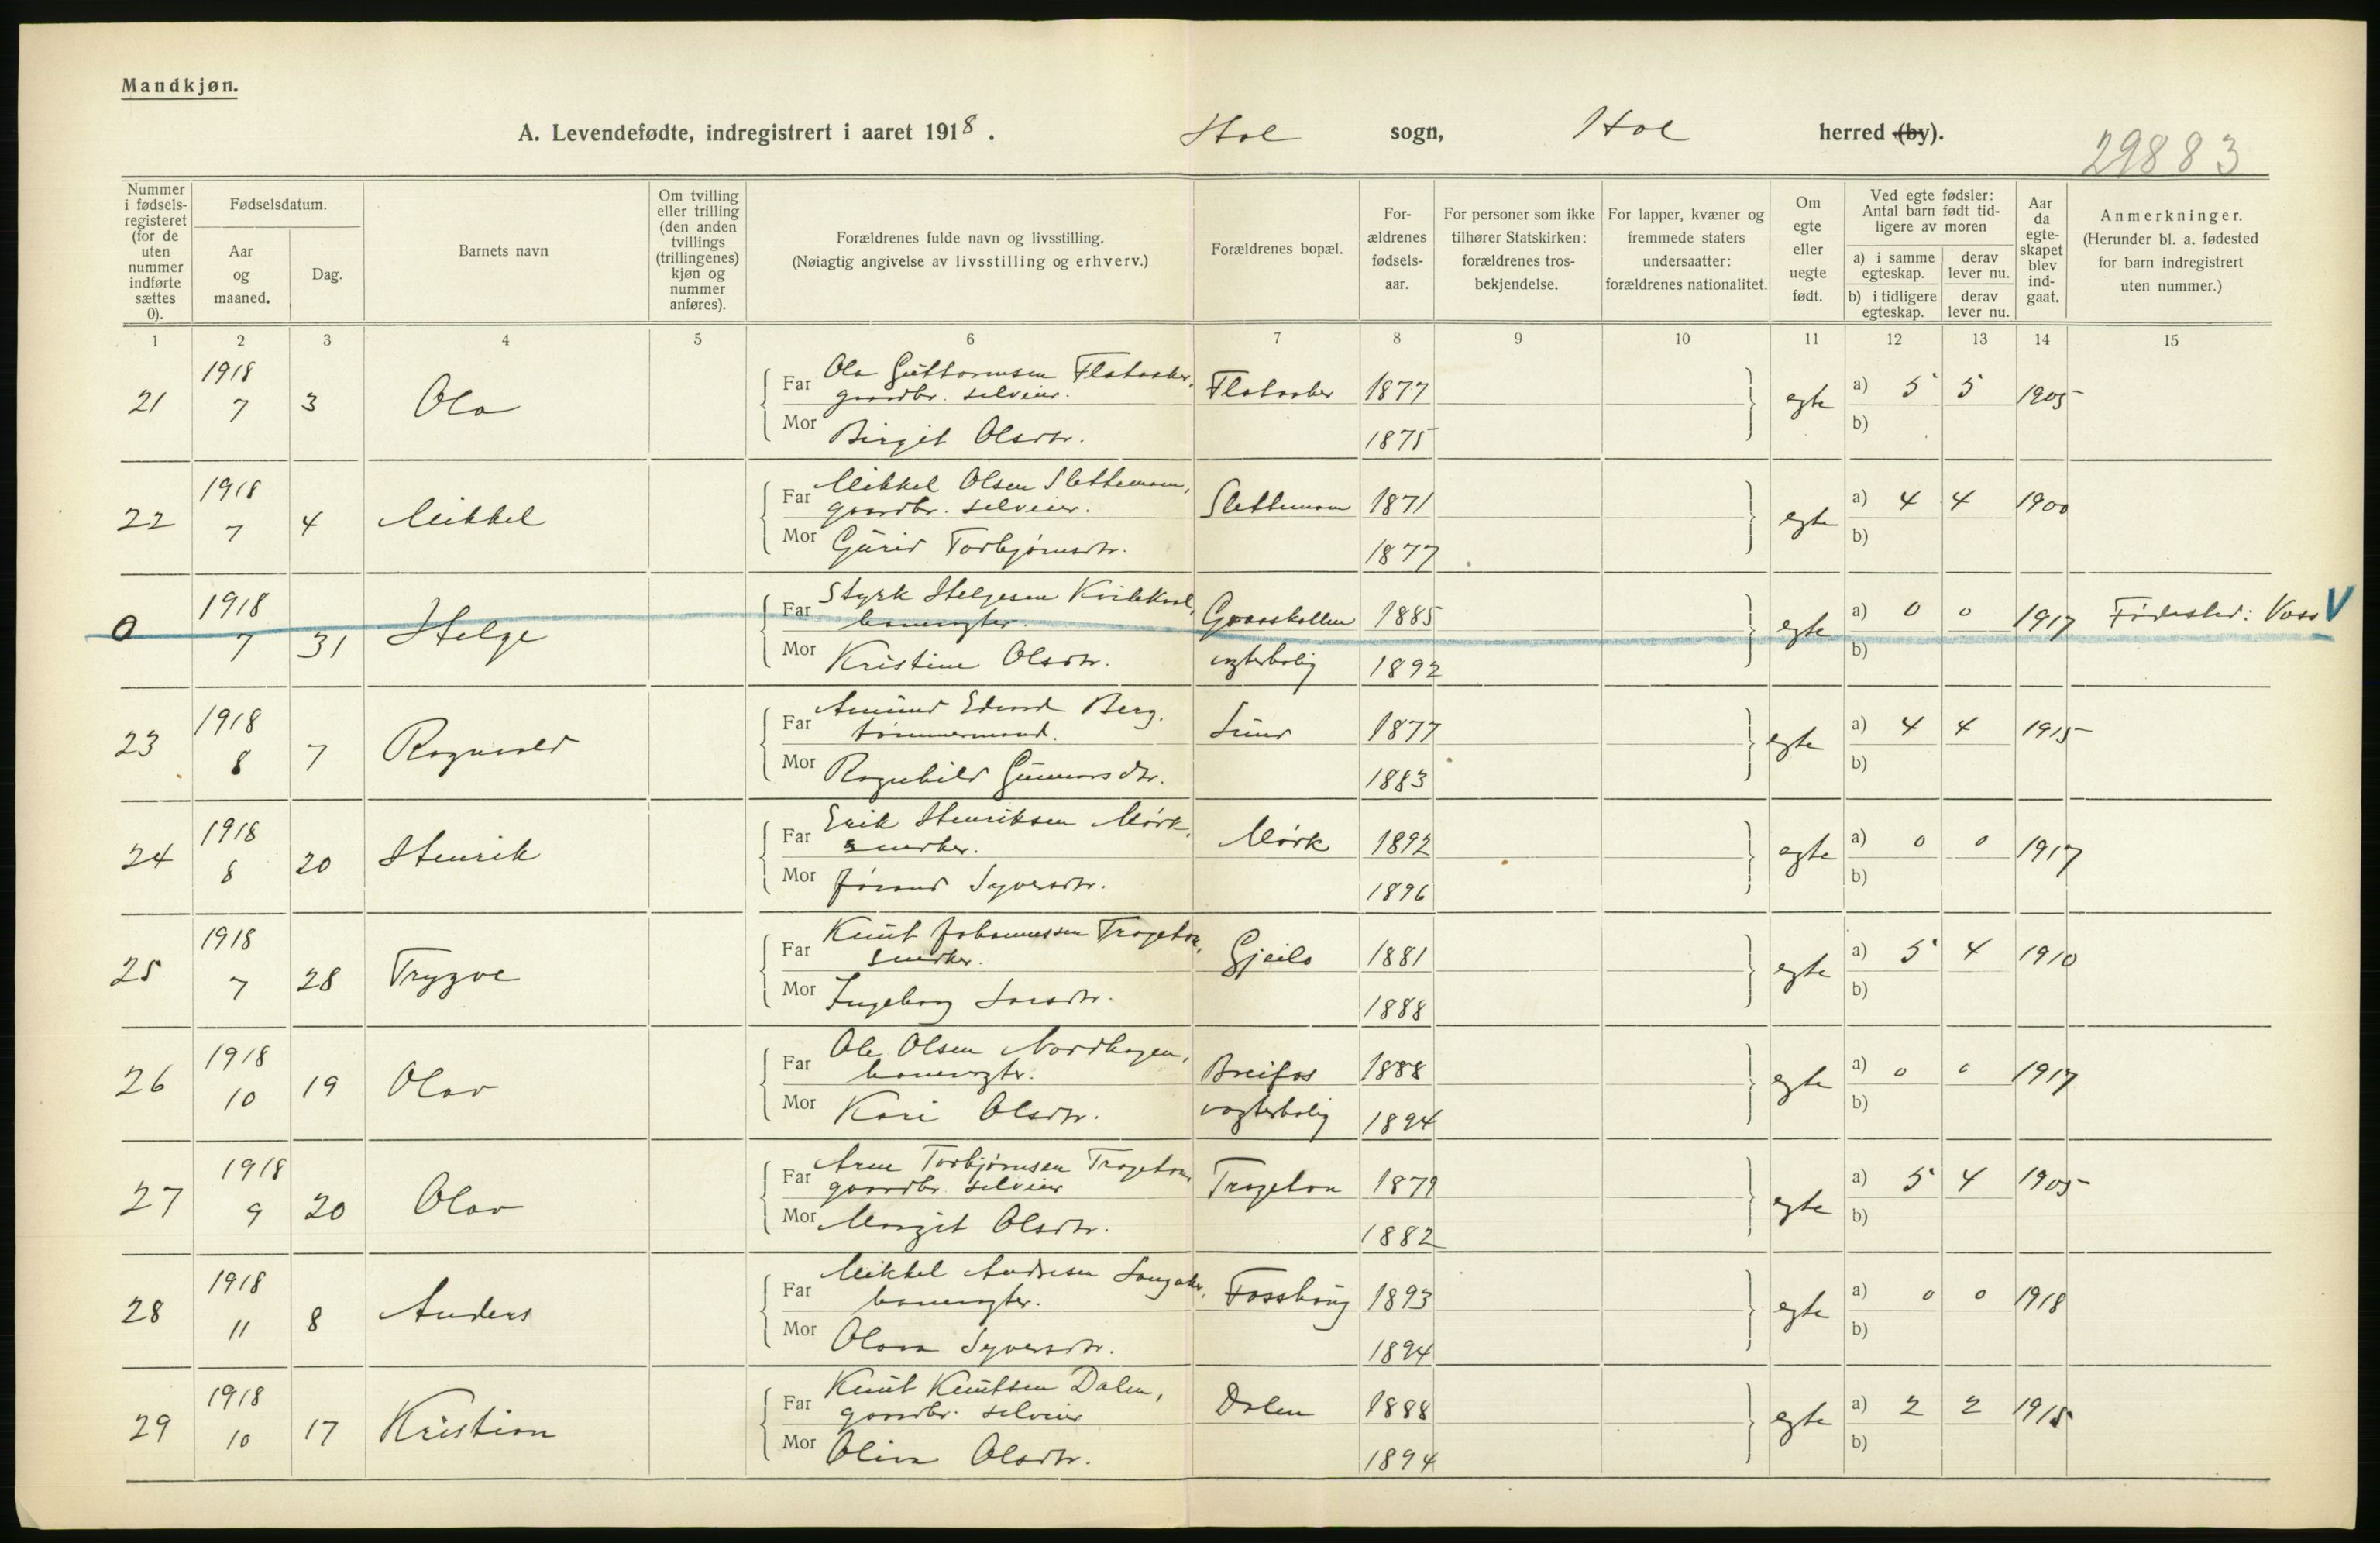 Mandkjøn.
A. Levendefødte, indregistrert i aaret 1918. Hol sogn, Hol herred (by).
29883
Nummer i fødselsregisteret (for de uten nummer indførte sættes 0).
Fødselsdatum.
Aar og maaned.
Dag.
Barnets navn
Om tvilling eller trilling (den anden tvillings (trillingenes) kjøn og nummer anføres).
Forældrenes fulde navn og livsstilling.
(Nøiagtig angivelse av livsstilling og erhverv.)
Forældrenes bopæl.
Forældrenes fødselsaar.
For personer som ikke tilhører Statskirken: forældrenes trosbekjendelse.
For lapper, kvæner og fremmede staters undersaatter: forældrenes nationalitet.
Om egte eller uegte født.
Ved egte fødsler: Antal barn født tidligere av moren
a) i samme egteskap. derav lever nu.
b) i tidligere egteskap. derav lever nu.
Aar da egteskapet blev indgaat.
Anmerkninger.
(Herunder bl. a. fødested for barn indregistrert uten nummer.)
1 2 3 4 5 6 7 8 9 10 11 12 13 14 15
21 1918 7 3 Ola
Far Ola Guttormsen Flataaker, Flataaker 1877 egte a) 5 5 1905
gaardbr. selveier.
Mor Birgit Olsdtr. 1875 b)
22 1918 7 4 Mikkel
Far Mikkel Olsen Slettemoen, Slettemoen 1871 egte a) 4 4 1900
gaardbr. selveier.
Mor Gurid Torbjørnsdtr. 1877 b)
0 1918 7 31 Helge
Far Styrk Helgesen 1885 egte a) 0 0 1917 Fødested: Voss V
banevogter.
Mor Kristine Olsdtr. vogterbolig 1892 b)
23 1918 8 7 Ragnvald
Far Amund Edvard Berg. Lund 1877 egte a) 4 4 1915
tømmermand.
Mor Ragnhild Gunnarsdtr. 1883 b)
24 1918 8 20 Henrik
Far Erik Henriksen Mørk, Mørk 1892 egte a) 0 0 1917
snedker.
Mor Jørand Syversdtr. 1896 b)
25 1918 7 28 Trygve
Far Knut Johannessen Trageton, Gjeilo 1881 egte a) 5 4 1910
snedker.
Mor Ingeborg Larsdtr. 1888 b)
26 1918 10 19 Olav
Far Ole Olsen Nordhagen, Breifos 1888 egte a) 0 0 1917
banevogter.
Mor Kari Olsdtr. vogterbolig 1894 b)
27 1918 9 20 Olav
Far Arne Torbjørnsen Trageton, Trageton 1879 egte a) 5 4 1905
gaardbr. selveier
Mor Margit Olsdtr. 1882 b)
28 1918 11 8 Anders
Far Mikkel Andresen Langaker, Fosshaug 1893 egte a) 0 0 1918
banevogter.
Mor Olava Syversdtr. 1894 b)
29 1918 10 17 Kristian
Far Knut Knutsen Dalen, Dalen 1888 egte a) 2 2 1915
gaardbr. selveier
Mor Oliva Olsdtr. 1894 b)